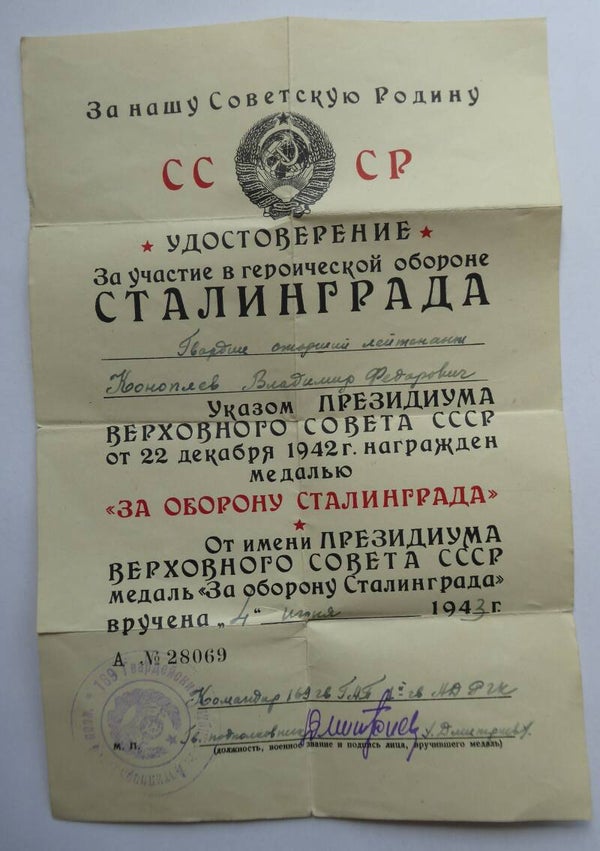 За нашу Советскую Родину
СССР
УДОСТОВЕРЕНИЕ
За участие в героической обороне
СТАЛИНГРАДА
Гвардии старший лейтенант
Коноплев Владимир Федорович
Указом ПРЕЗИДИУМА
ВЕРХОВНОГО СОВЕТА СССР
от 22 декабря 1942 г. награжден
медалью
«ЗА ОБОРОНУ СТАЛИНГРАДА»
От имени ПРЕЗИДИУМА
ВЕРХОВНОГО СОВЕТА СССР
медаль «За оборону Сталинграда»
вручена „4“ июня 1943 г.
А № 28069
Командир 169 гв ГАП гв АД РГК
Гв. подполковник /Дмитриев/
М. П.
(должность, военное звание и подпись лица, вручившего медаль)
169 Гвардейский